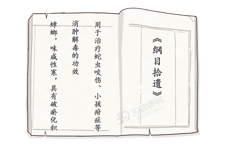 《纲目拾遗》
蟑螂，味咸性寒，具有破瘀化积
消肿解毒的功效
用于治疗蛇虫咬伤、小孩疳症等